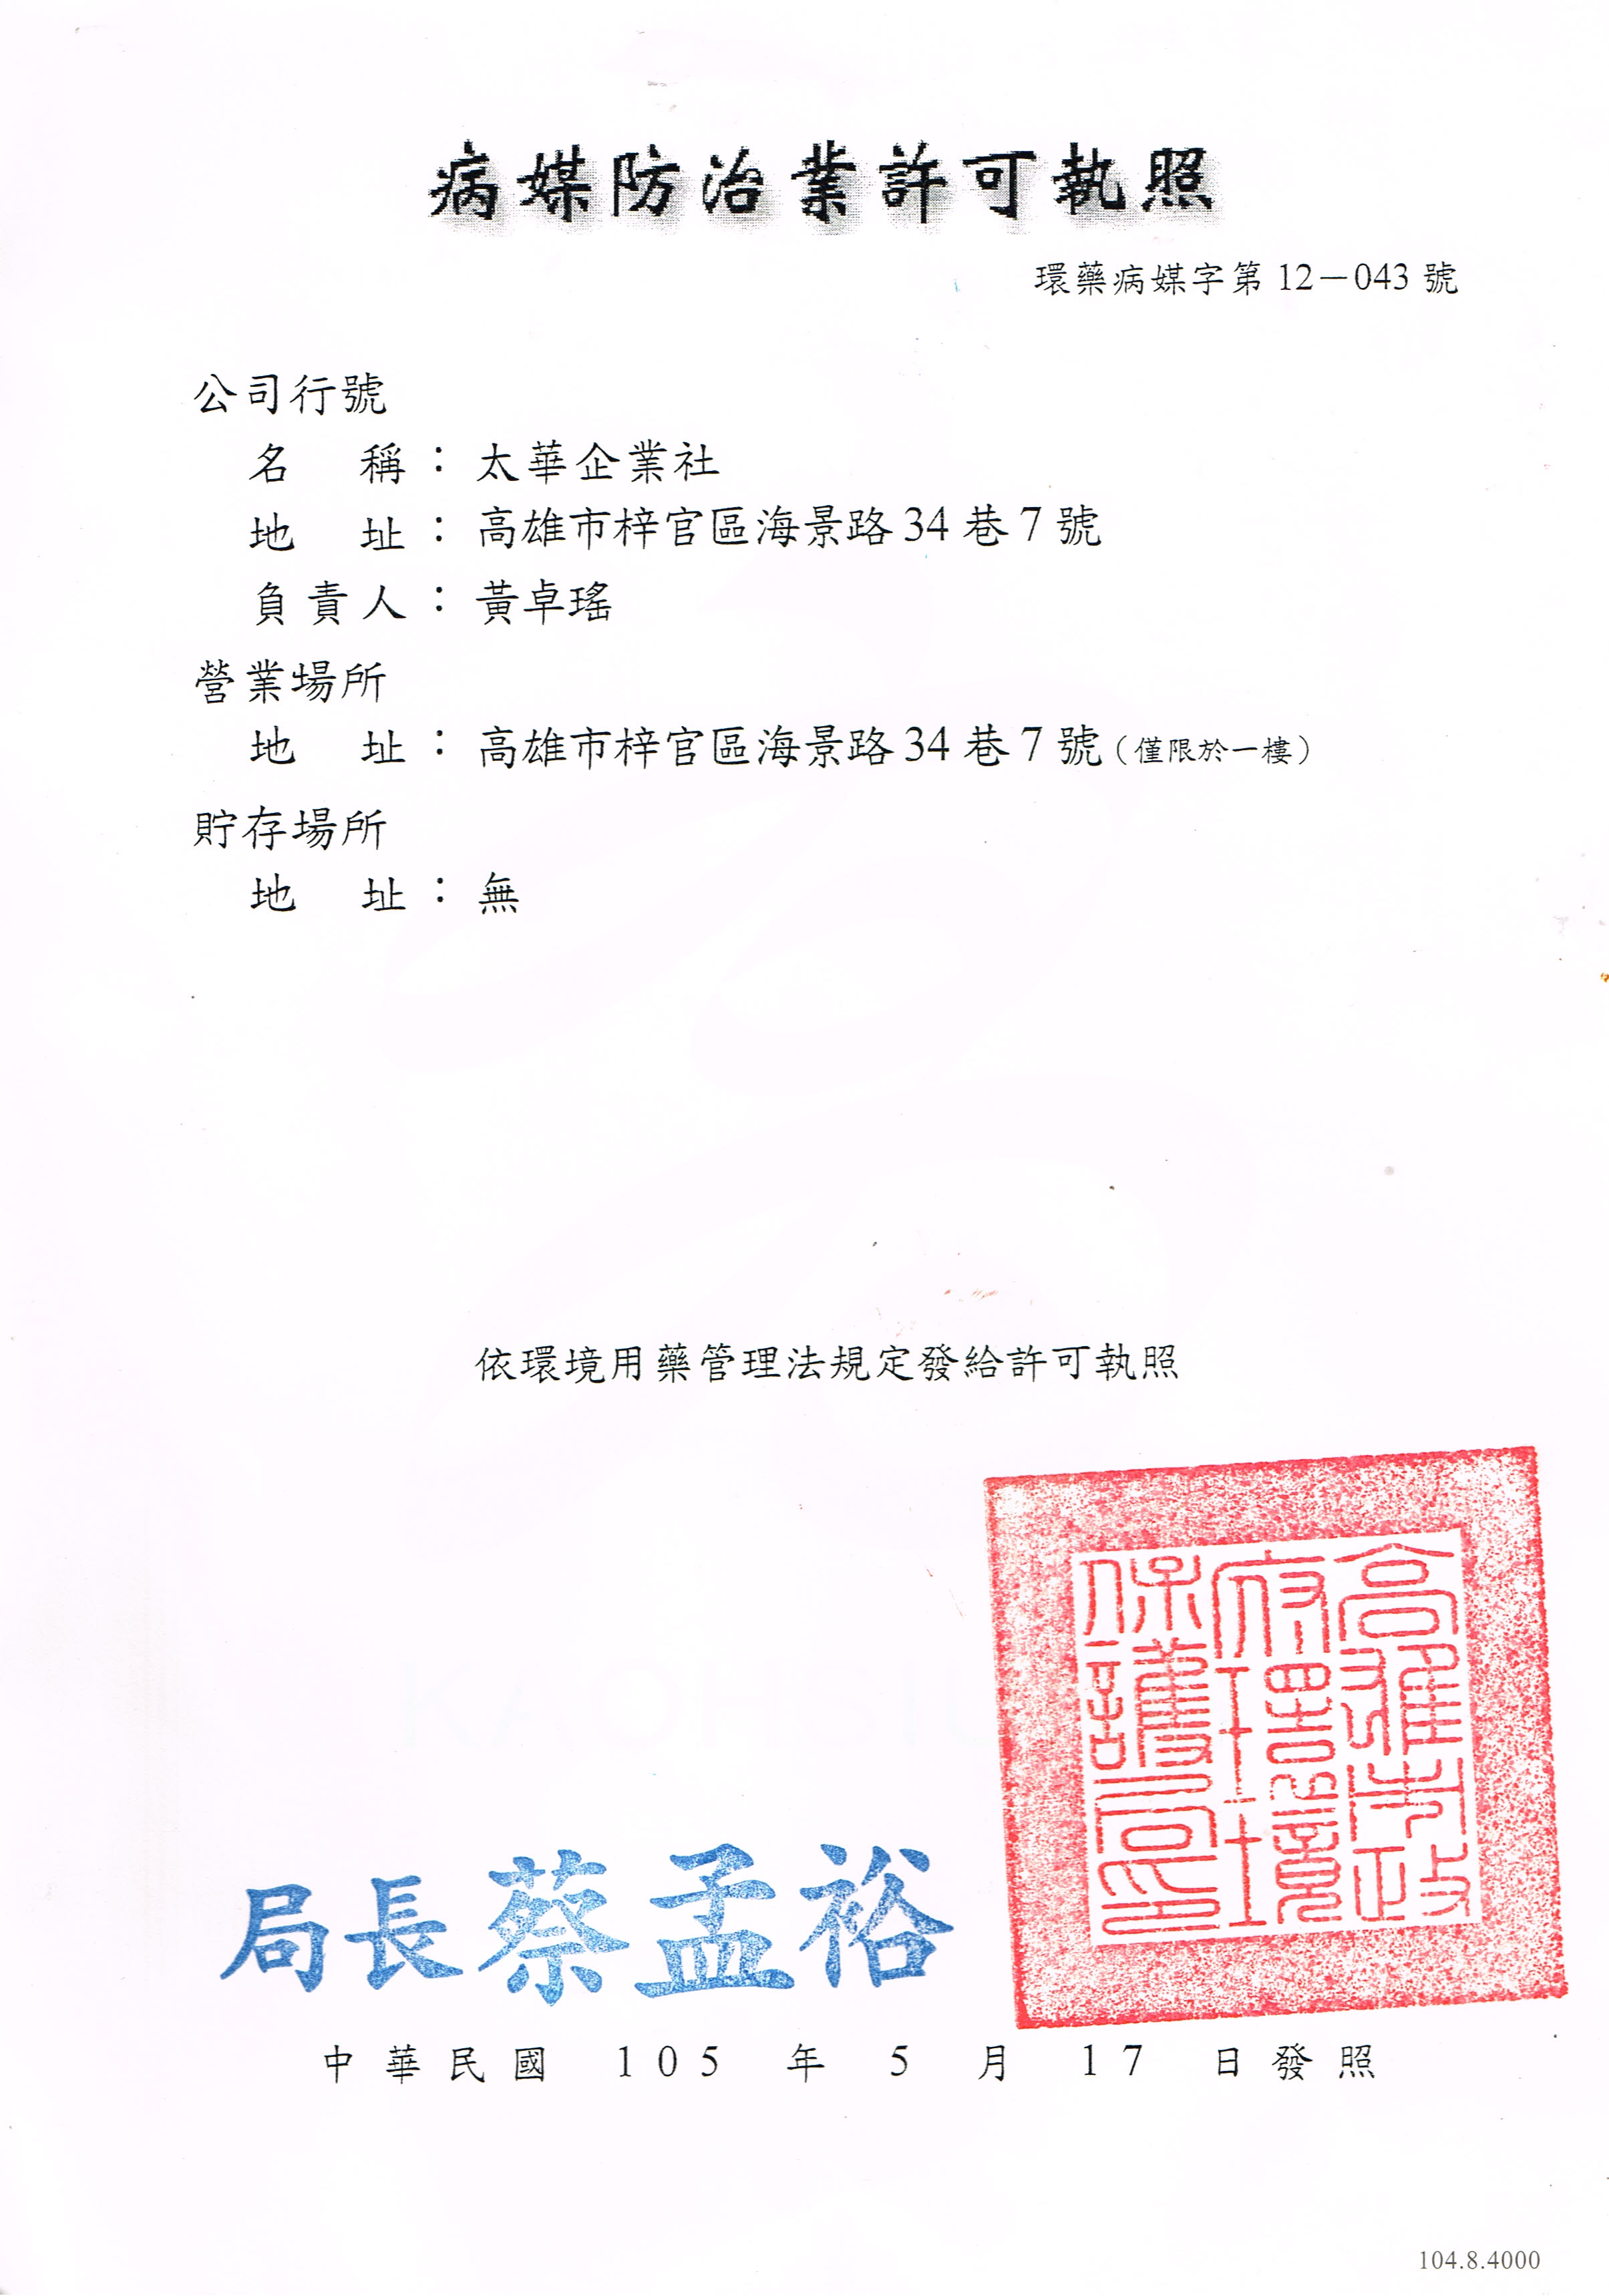 病媒防治業許可執照
環藥病媒字第 12－043 號
公司行號
名　稱：太華企業社
地　址：高雄市梓官區海景路 34 巷 7 號
負責人：黃卓瑤
營業場所
地　址：高雄市梓官區海景路 34 巷 7 號（僅限於一樓）
貯存場所
地　址：無
依環境用藥管理法規定發給許可執照
高雄市政
府環境
保護局印
局長蔡孟裕
中華民國 105 年 5 月 17 日發照
104.8.4000